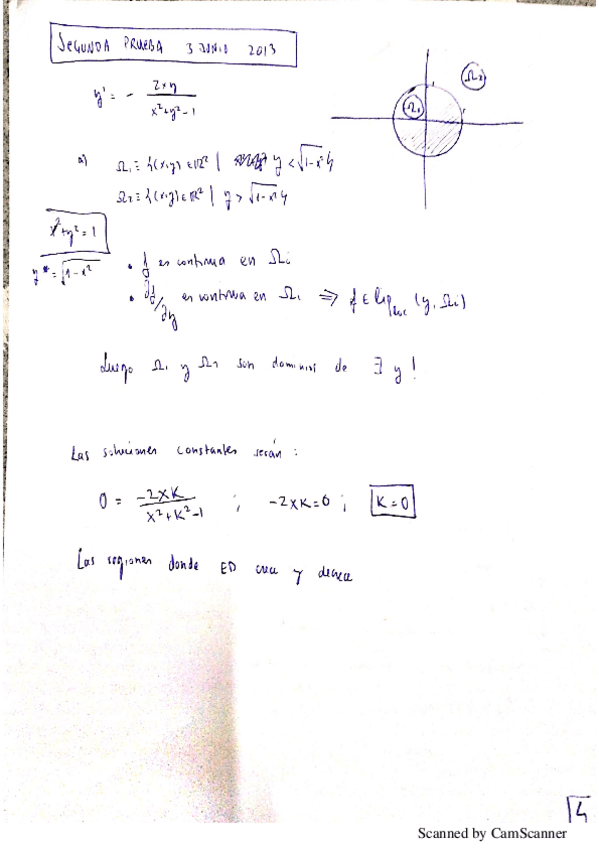 SEGUNDA PRUEBA 3 JUNIO 2013
y' = - 2xy / x²+y²-1
Ω₂
Ω₁
a) Ω₁ ≡ {(x,y) ∈ ℝ² | y < √1-x²}
Ω₂ ≡ {(x,y) ∈ ℝ² | y > √1-x²}
x²+y² = 1
y* = √1-x²
• f es continua en Ωi
• ∂f/∂y es continua en Ωi ⇒ f ∈ Lip loc (y, Ωi)
Luego Ω₁ y Ω₂ son dominios de ∃ y !
Las soluciones constantes serán :
0 = -2xK / x²+K²-1 ; -2xK=0 ; K=0
Las regiones donde ED crece y decrece
4
Scanned by CamScanner